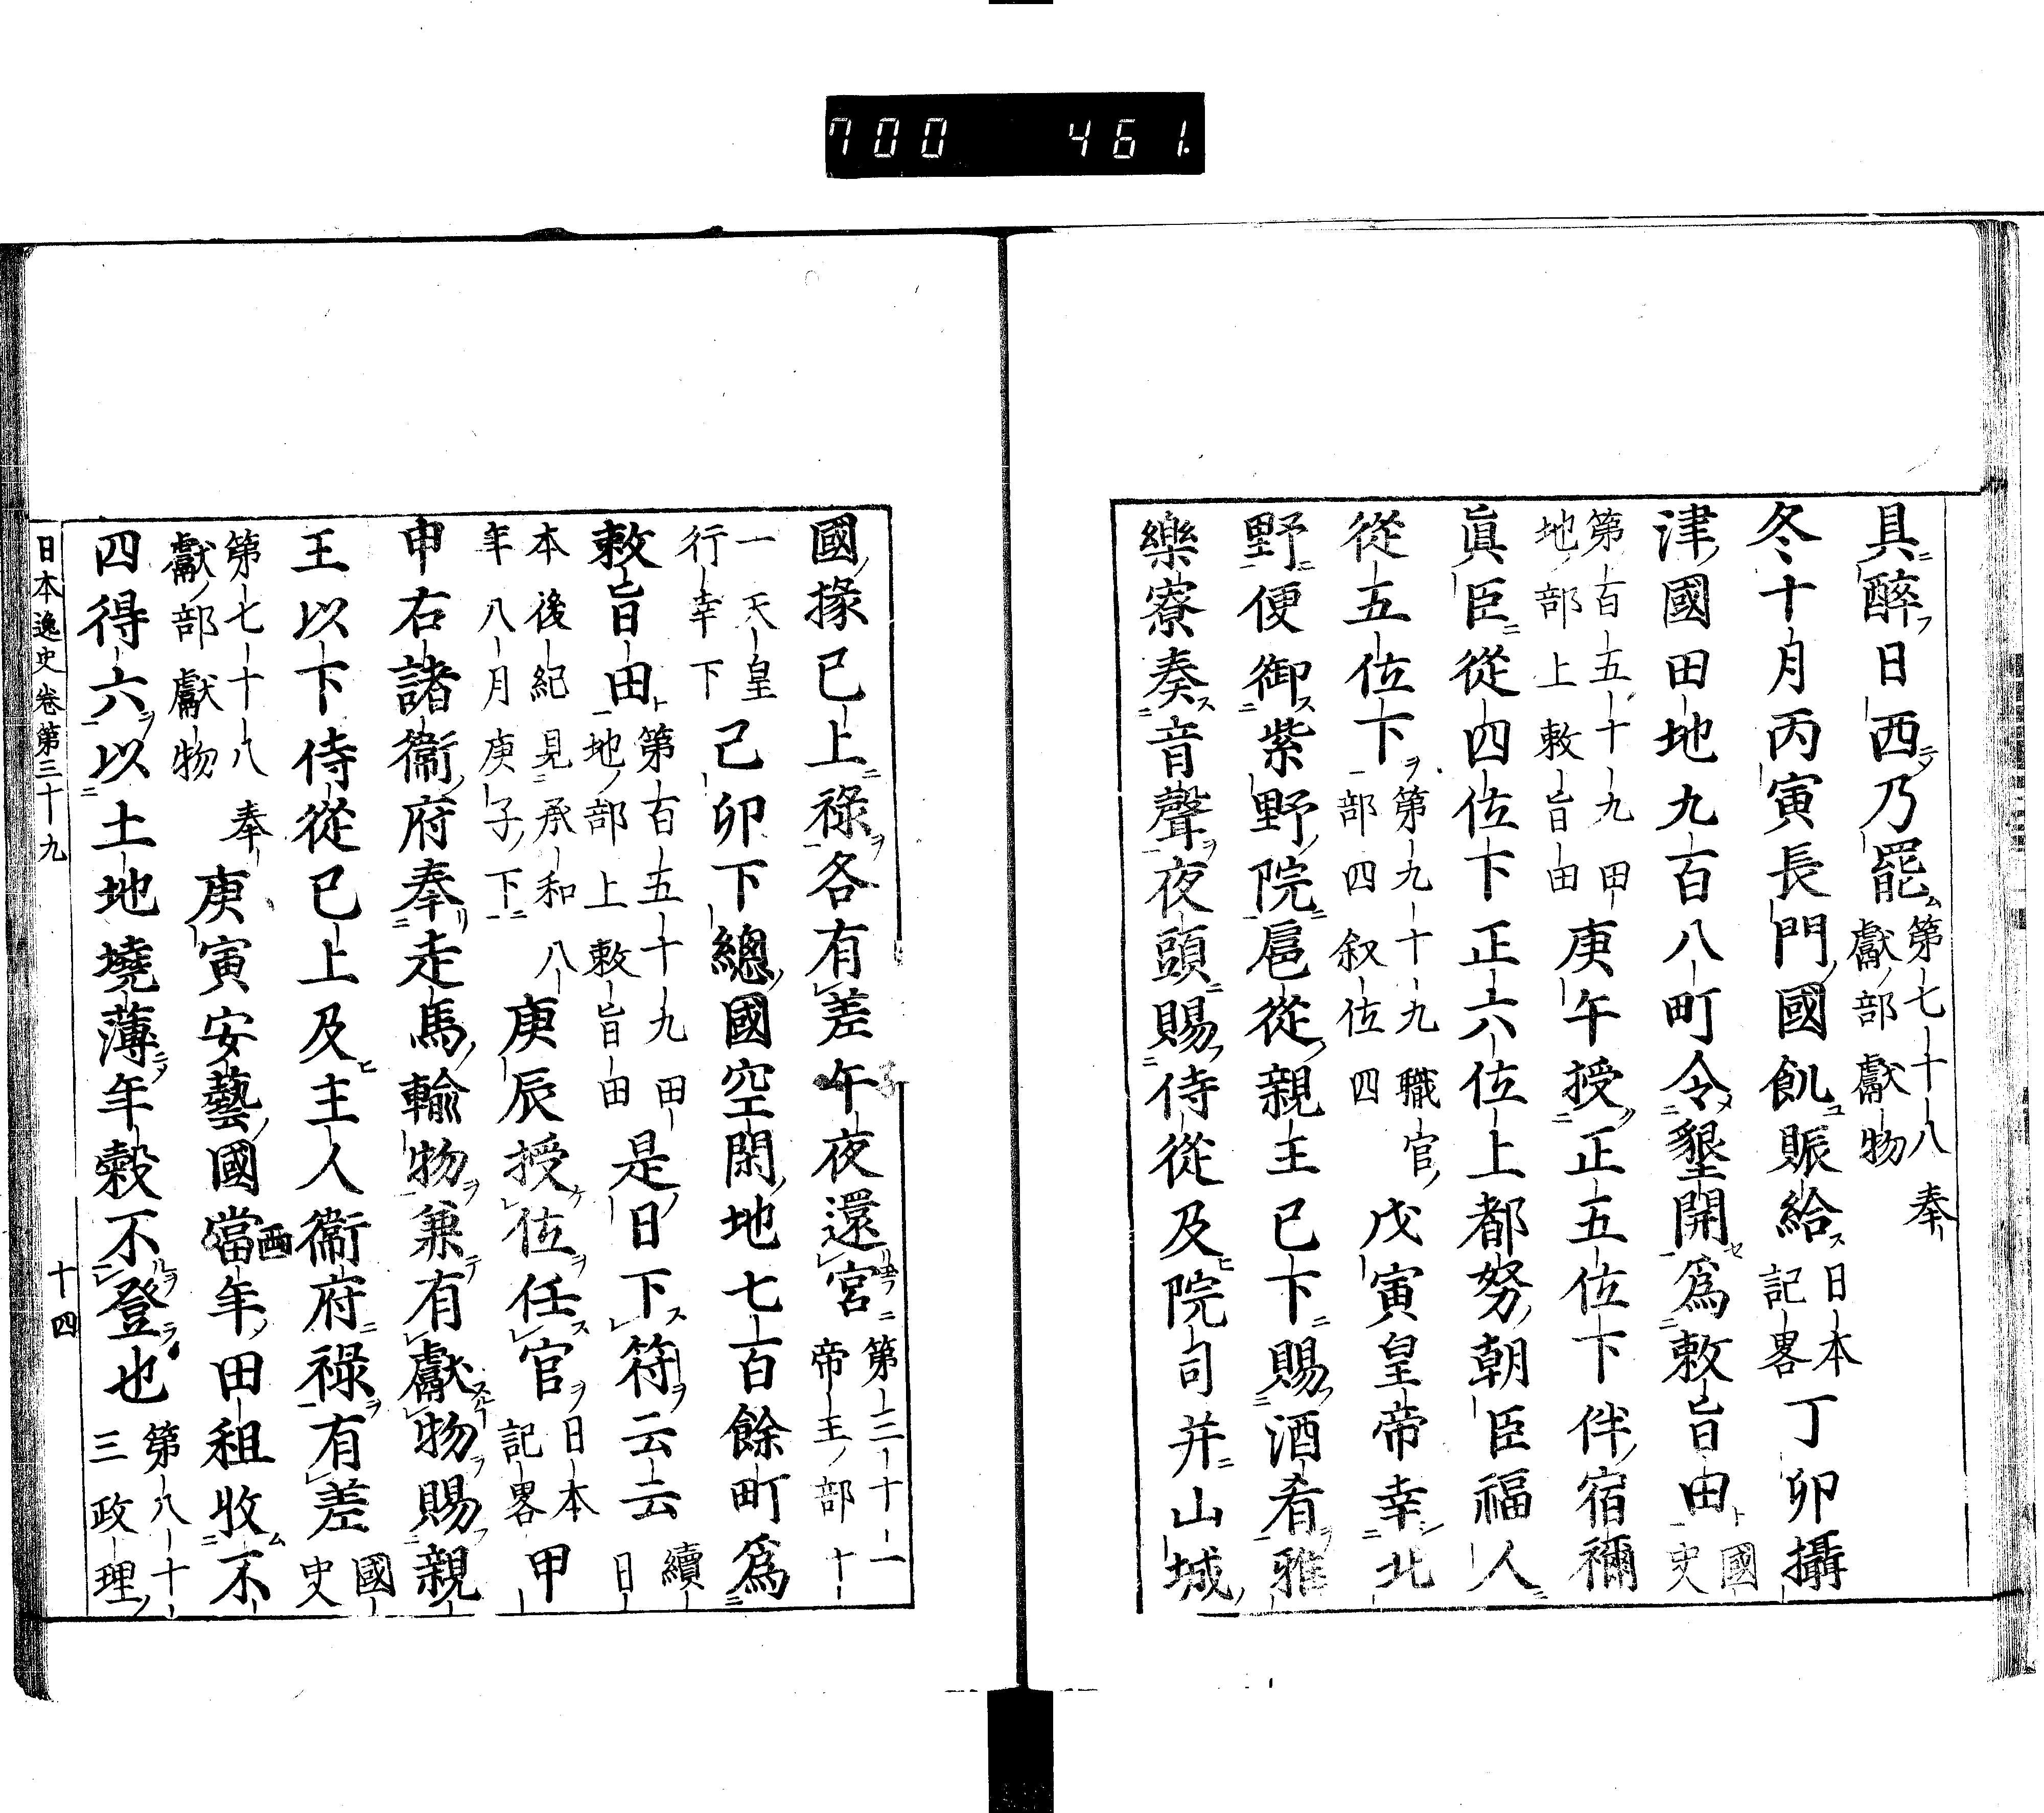 700 461.
具醉日西乃罷 第七十八 奉獻部 獻物
冬十月丙寅長門國飢賑給 日本記畧 丁卯攝
津國田地九百八町令墾開爲敕旨由 國史
第百五十九 田地部上 敕旨田 庚午授正五位下伴宿禰
眞臣從四位下正六位上都努朝臣福人
從五位下 第九十九 職官部四 叙位四 戊寅皇帝幸北
野便御紫野院扈從親王已下賜酒肴雅
樂寮奏音聲夜頭賜侍從及院司并山城
國掾已上祿各有差午夜還宮 第三十一 帝王部十
一 天皇行幸下 己卯下總國空閑地七百餘町爲
敕旨田 第百五十九 田地部上 敕旨田 是日下符云云 續日
本後紀見承和八年八月庚子下 庚辰授位任官 日本記畧 甲
申右諸衞府奉走馬輸物兼有獻物賜親
王以下侍從已上及主人衞府祿有差 國史
第七十八 奉獻部 獻物 庚寅安藝國當年田租收不
西
四得六以土地墝薄年穀不登也 第八十三 政理
日本逸史卷第三十九 十四